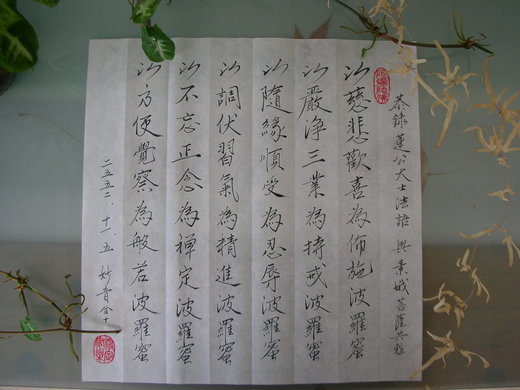 恭錄蓮公大士法語 與素娥菩薩共勉
以慈悲歡喜為佈施波羅蜜
以嚴淨三業為持戒波羅蜜
以隨緣順受為忍辱波羅蜜
以調伏習氣為精進波羅蜜
以不忘正念為禪定波羅蜜
以方便覺察為般若波羅蜜
二五五二、十一、五 妙音合十